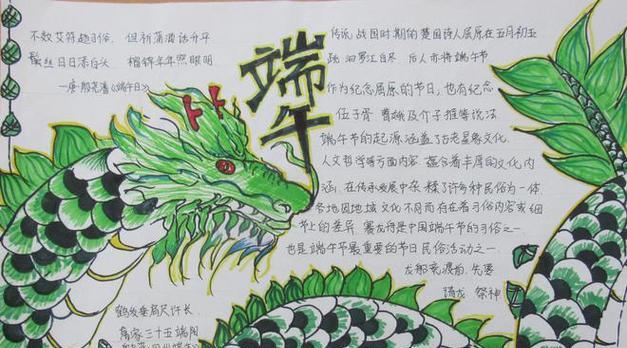 不效艾符趋习俗, 但祈蒲酒话升平
鬓丝日日添白头 榴锦年年照眼明
—唐·殷尧藩《端午日》
端午
传说战国时期的楚国诗人屈原在五月初五
跳汨罗江自尽 后人亦将端午节
作为纪念屈原的节日,也有纪念
伍子胥 曹娥及介子推等说法.
端午节的起源涵盖了古老星象文化.
人文哲学等方面内容 蕴含着丰厚的文化内
涵,在传承发展中杂糅了许多种民俗为一体
各地因地域文化不同而存在着习俗内容或细
节上的差异 赛龙舟是中国端午节的习俗之一
也是端午节最重要的节日民俗活动之一.
龙船竞渡前,先要
请龙 祭神
鹤发垂肩尺许长
离家三十五端阳